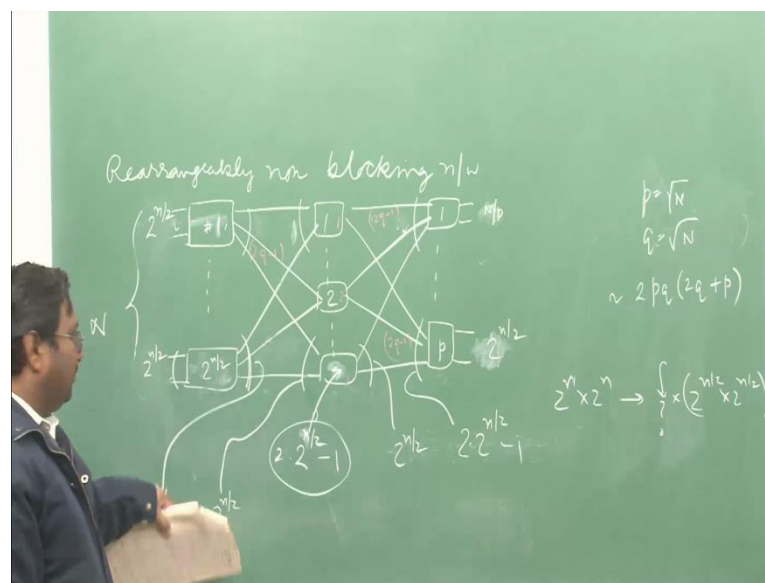 Rearrangeably non blocking n/w
2^{n/2} #1 1 (2q-1) 1 N/p
(2q-1)
2
N
2^{n/2} 2^{n/2} (2q-1) p 2^{n/2}
2·2^{n/2} - 1 2^{n/2} 2·2^{n/2} - 1
2^{n/2}
p=√N
q=√N
~ 2pq(2q+p)
2^n × 2^n → × (2^{n/2} × 2^{n/2})